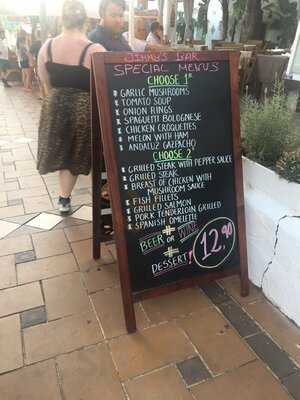 Jimmy's Bar
Special Menus
Choose 1st
Garlic Mushrooms
Tomato Soup
Onion Rings
Spaguetti Bolognese
Chicken Croquettes
Melon with Ham
Andaluz Gazpacho
Choose 2
Grilled Steak with Pepper Sauce
Grilled Steak
Breast of Chicken with
Mushroom Sauce
Fish Fillets
Grilled Salmon
Pork Tenderloin Grilled
Spanish Omelette
Beer or Wine
Dessert!
12.90